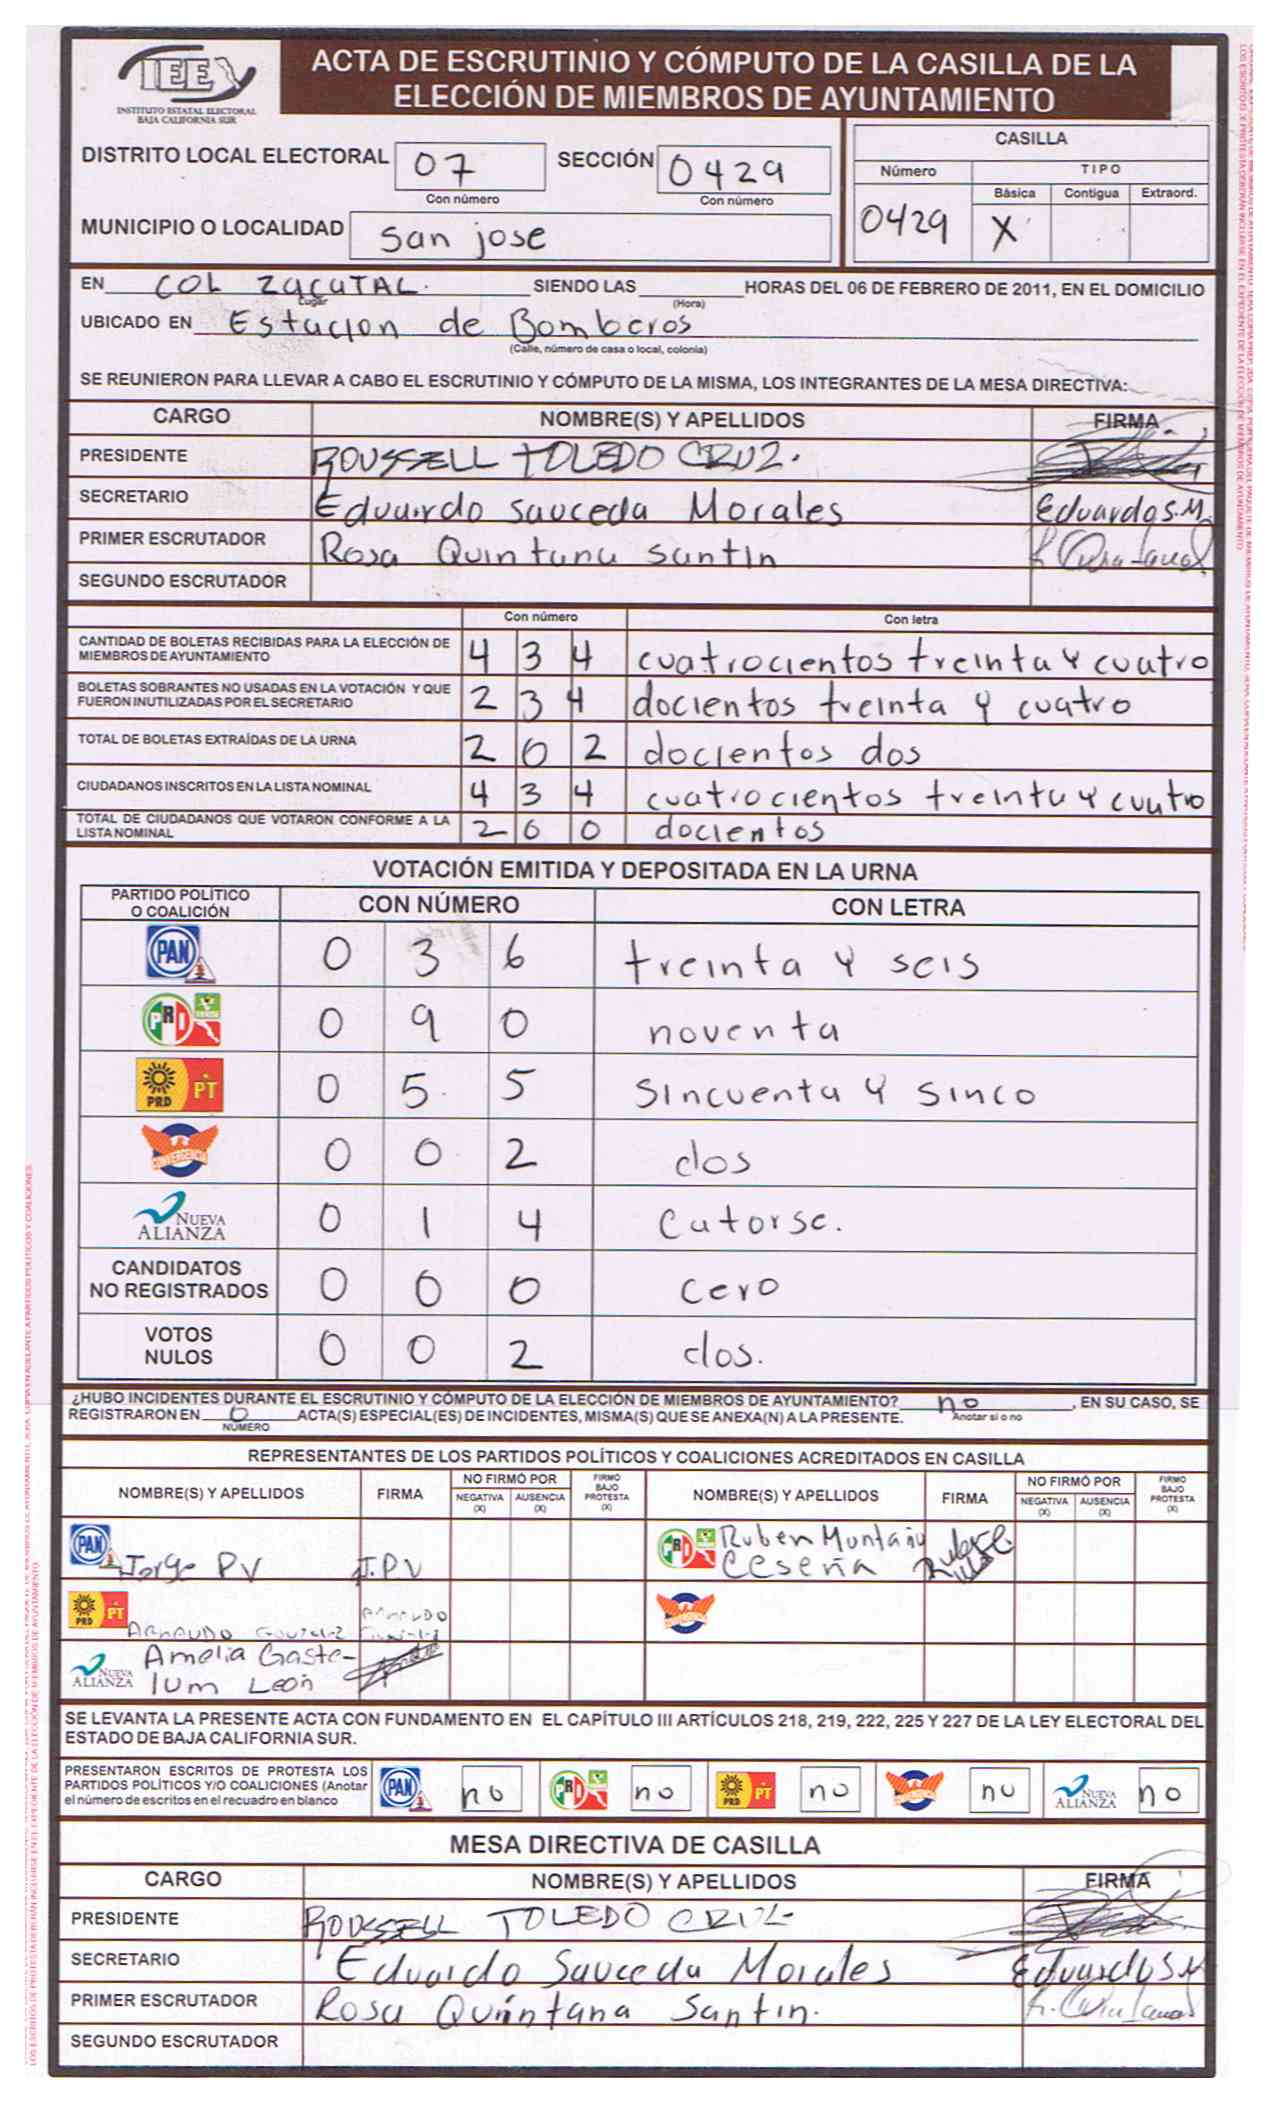 IEE
INSTITUTO ESTATAL ELECTORAL
BAJA CALIFORNIA SUR
ACTA DE ESCRUTINIO Y CÓMPUTO DE LA CASILLA DE LA
ELECCIÓN DE MIEMBROS DE AYUNTAMIENTO
DISTRITO LOCAL ELECTORAL 07 SECCIÓN 0429
Con número Con número
MUNICIPIO O LOCALIDAD San jose
CASILLA
Número TIPO
Básica Contigua Extraord.
0429 X
EN COL ZacaTAL. SIENDO LAS HORAS DEL 06 DE FEBRERO DE 2011, EN EL DOMICILIO
Lugar (Hora)
UBICADO EN Estacion de Bomberos
(Calle, número de casa o local, colonia)
SE REUNIERON PARA LLEVAR A CABO EL ESCRUTINIO Y CÓMPUTO DE LA MISMA, LOS INTEGRANTES DE LA MESA DIRECTIVA:
CARGO NOMBRE(S) Y APELLIDOS FIRMA
PRESIDENTE ROUSSELL TOLEDO CRUZ.
SECRETARIO Eduardo Sauceda Morales Eduardo S.M.
PRIMER ESCRUTADOR Rosa Quintana Santin
SEGUNDO ESCRUTADOR
Con número Con letra
CANTIDAD DE BOLETAS RECIBIDAS PARA LA ELECCIÓN DE
MIEMBROS DE AYUNTAMIENTO 4 3 4 cuatrocientos treinta y cuatro
BOLETAS SOBRANTES NO USADAS EN LA VOTACIÓN Y QUE
FUERON INUTILIZADAS POR EL SECRETARIO 2 3 4 docientos treinta y cuatro
TOTAL DE BOLETAS EXTRAÍDAS DE LA URNA 2 0 2 docientos dos
CIUDADANOS INSCRITOS EN LA LISTA NOMINAL 4 3 4 cuatrocientos treinta y cuatro
TOTAL DE CIUDADANOS QUE VOTARON CONFORME A LA
LISTA NOMINAL 2 0 0 docientos
VOTACIÓN EMITIDA Y DEPOSITADA EN LA URNA
PARTIDO POLÍTICO
O COALICIÓN CON NÚMERO CON LETRA
PAN 0 3 6 treinta y seis
PRI 0 9 0 noventa
PRD PT 0 5 5 sincuenta y sinco
CONVERGENCIA 0 0 2 dos
NUEVA ALIANZA 0 1 4 catorse.
CANDIDATOS
NO REGISTRADOS 0 0 0 cero
VOTOS
NULOS 0 0 2 dos.
¿HUBO INCIDENTES DURANTE EL ESCRUTINIO Y CÓMPUTO DE LA ELECCIÓN DE MIEMBROS DE AYUNTAMIENTO? no , EN SU CASO, SE
REGISTRARON EN 0 ACTA(S) ESPECIAL(ES) DE INCIDENTES, MISMA(S) QUE SE ANEXA(N) A LA PRESENTE. Anotar si o no
NÚMERO
REPRESENTANTES DE LOS PARTIDOS POLÍTICOS Y COALICIONES ACREDITADOS EN CASILLA
NOMBRE(S) Y APELLIDOS FIRMA NO FIRMÓ POR NEGATIVA (X) AUSENCIA (X) FIRMÓ BAJO PROTESTA (X) NOMBRE(S) Y APELLIDOS FIRMA NO FIRMÓ POR NEGATIVA (X) AUSENCIA (X) FIRMÓ BAJO PROTESTA (X)
PAN Jorge PV J.PV PRI Ruben Montaño
Ceseña
PRD PT Arnaudo Gonzalez
NUEVA ALIANZA Amelia Gaste-
lum León
SE LEVANTA LA PRESENTE ACTA CON FUNDAMENTO EN EL CAPÍTULO III ARTÍCULOS 218, 219, 222, 225 Y 227 DE LA LEY ELECTORAL DEL
ESTADO DE BAJA CALIFORNIA SUR.
PRESENTARON ESCRITOS DE PROTESTA LOS
PARTIDOS POLÍTICOS Y/O COALICIONES (Anotar
el número de escritos en el recuadro en blanco
PAN no PRI no PRD PT no no NUEVA ALIANZA no
MESA DIRECTIVA DE CASILLA
CARGO NOMBRE(S) Y APELLIDOS FIRMA
PRESIDENTE ROUSSELL TOLEDO CRUZ
SECRETARIO Eduardo Sauceda Morales Eduardo S.M
PRIMER ESCRUTADOR Rosa Quintana Santin.
SEGUNDO ESCRUTADOR